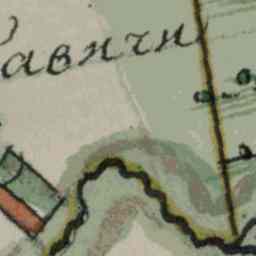 Савичи